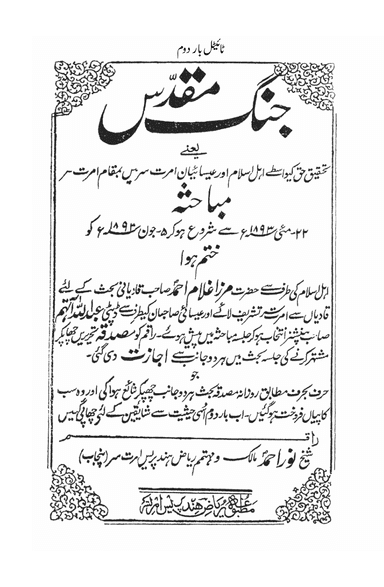 ٹائیٹل بار دوم
جنگ مقدّس
یعنے
تحقیق حق کیواسطے اہل اسلام اور عیسائیان امرت سر میں بمقام امرت سر
مباحثہ
۲۲-مئی ۱۸۹۳ء سے شروع ہو کر ۵-جون ۱۸۹۳ء کو
ختم ہوا
اہل اسلام کی طرف سے حضرت مرزا غلام احمد صاحب قادیانی بحث کے لئے
قادیاں سے امرت سر تشریف لائے اور عیسائی صاحبان کیطرف سے ڈپٹی عبداللہ آتھم
صاحب پنشنر انتخاب ہو کر جلسہ مباحثہ میں پیش ہوئے۔ راقم کو مصدقہ تحریریں چھاپکر
مشتہر کرنے کی جلسہ بحث میں ہر دو جانب سے اجازت دی گئی۔
جو
حرف بحرف مطابق روزانہ مصدقہ بحث ہر دو جانب چھپکر شائع ہوا کی اور وہ سب
کاپیاں فروخت ہو گئیں۔ اب بار دوم اُسی حیثیت سے شایقین کے لئے چھاپی گئیں
راقم
شیخ نور احمد مالک و مہتمم ریاض ہند پریس امرت سر (پنجاب)
مطبع ریاض ہند پریس امرتسر